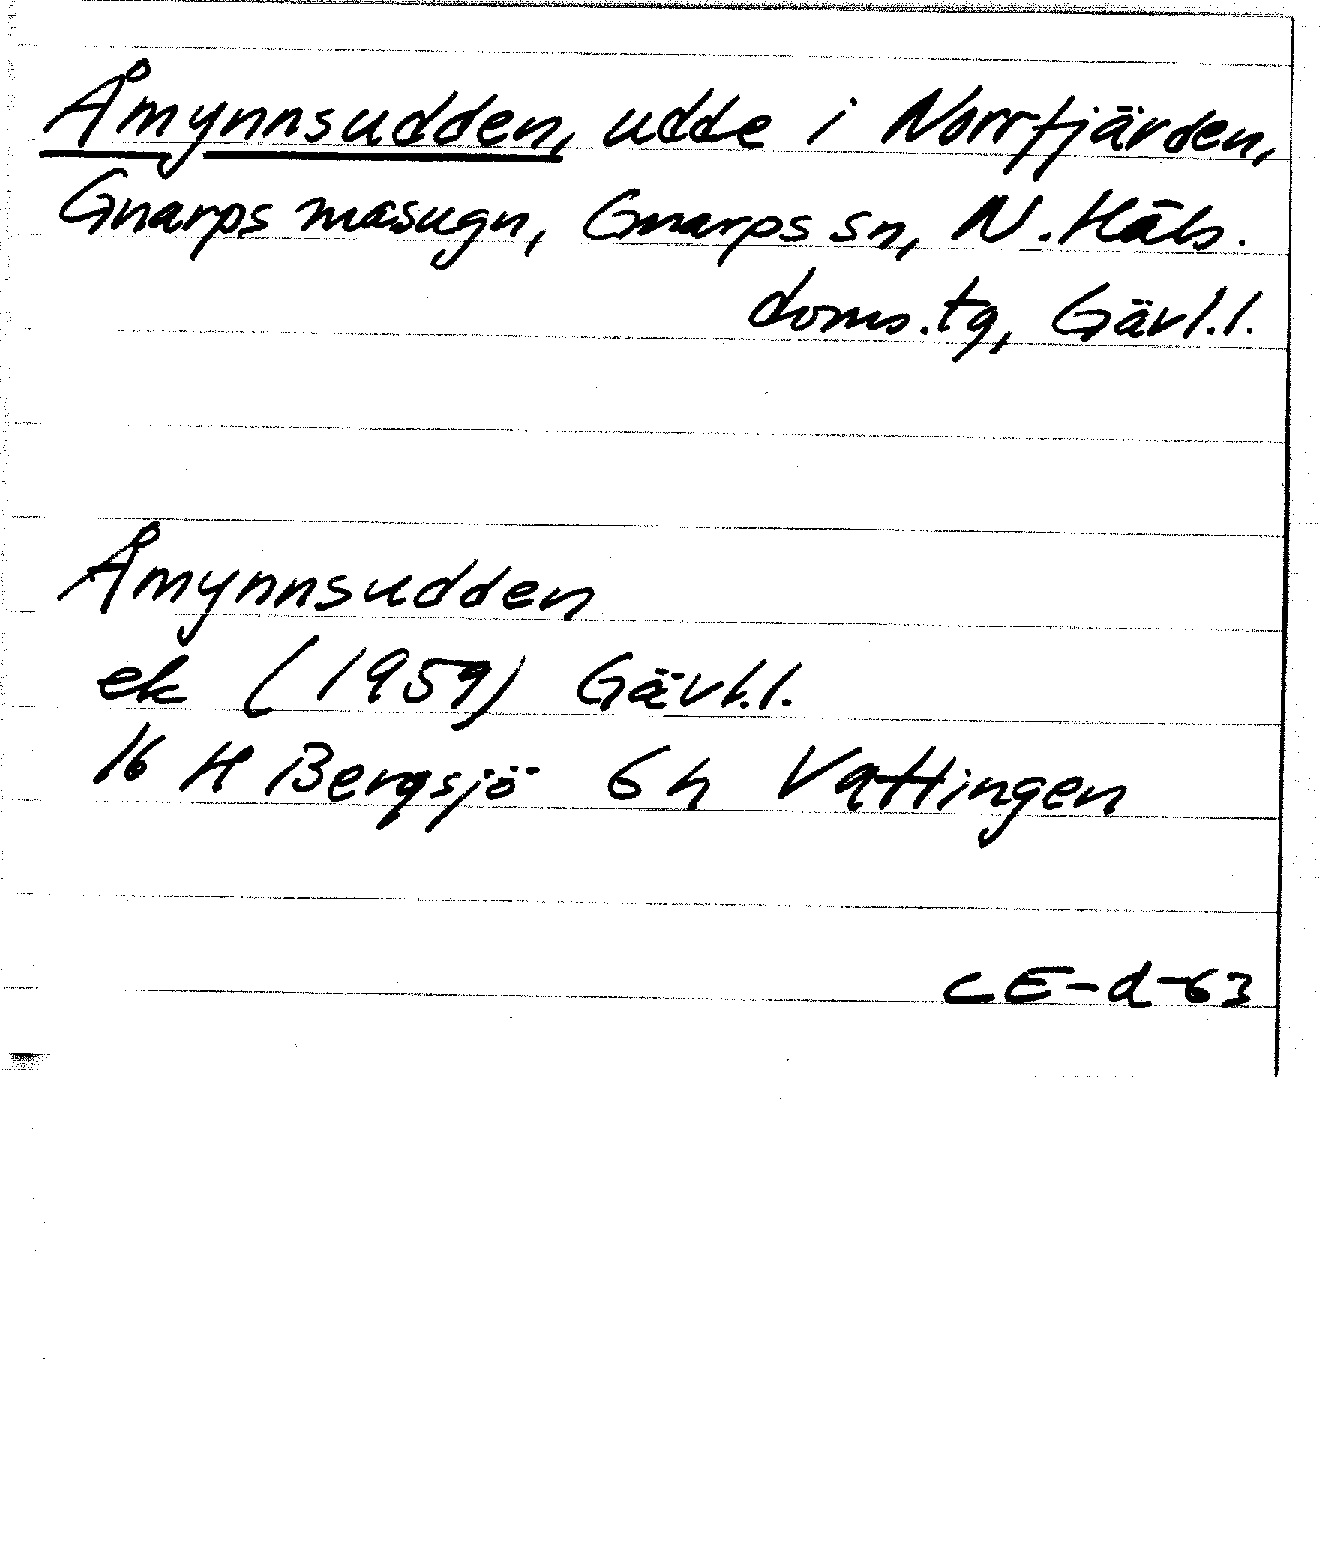 Åmynnsudden, udde i Norrfjärden,
Gnarps masugn, Gnarps sn, N. Häls.
doms.tg, Gävl.l.
Åmynnsudden
ek (1959) Gävl.l.
16 H Bergsjö 6 h Vattingen
CE-d-63